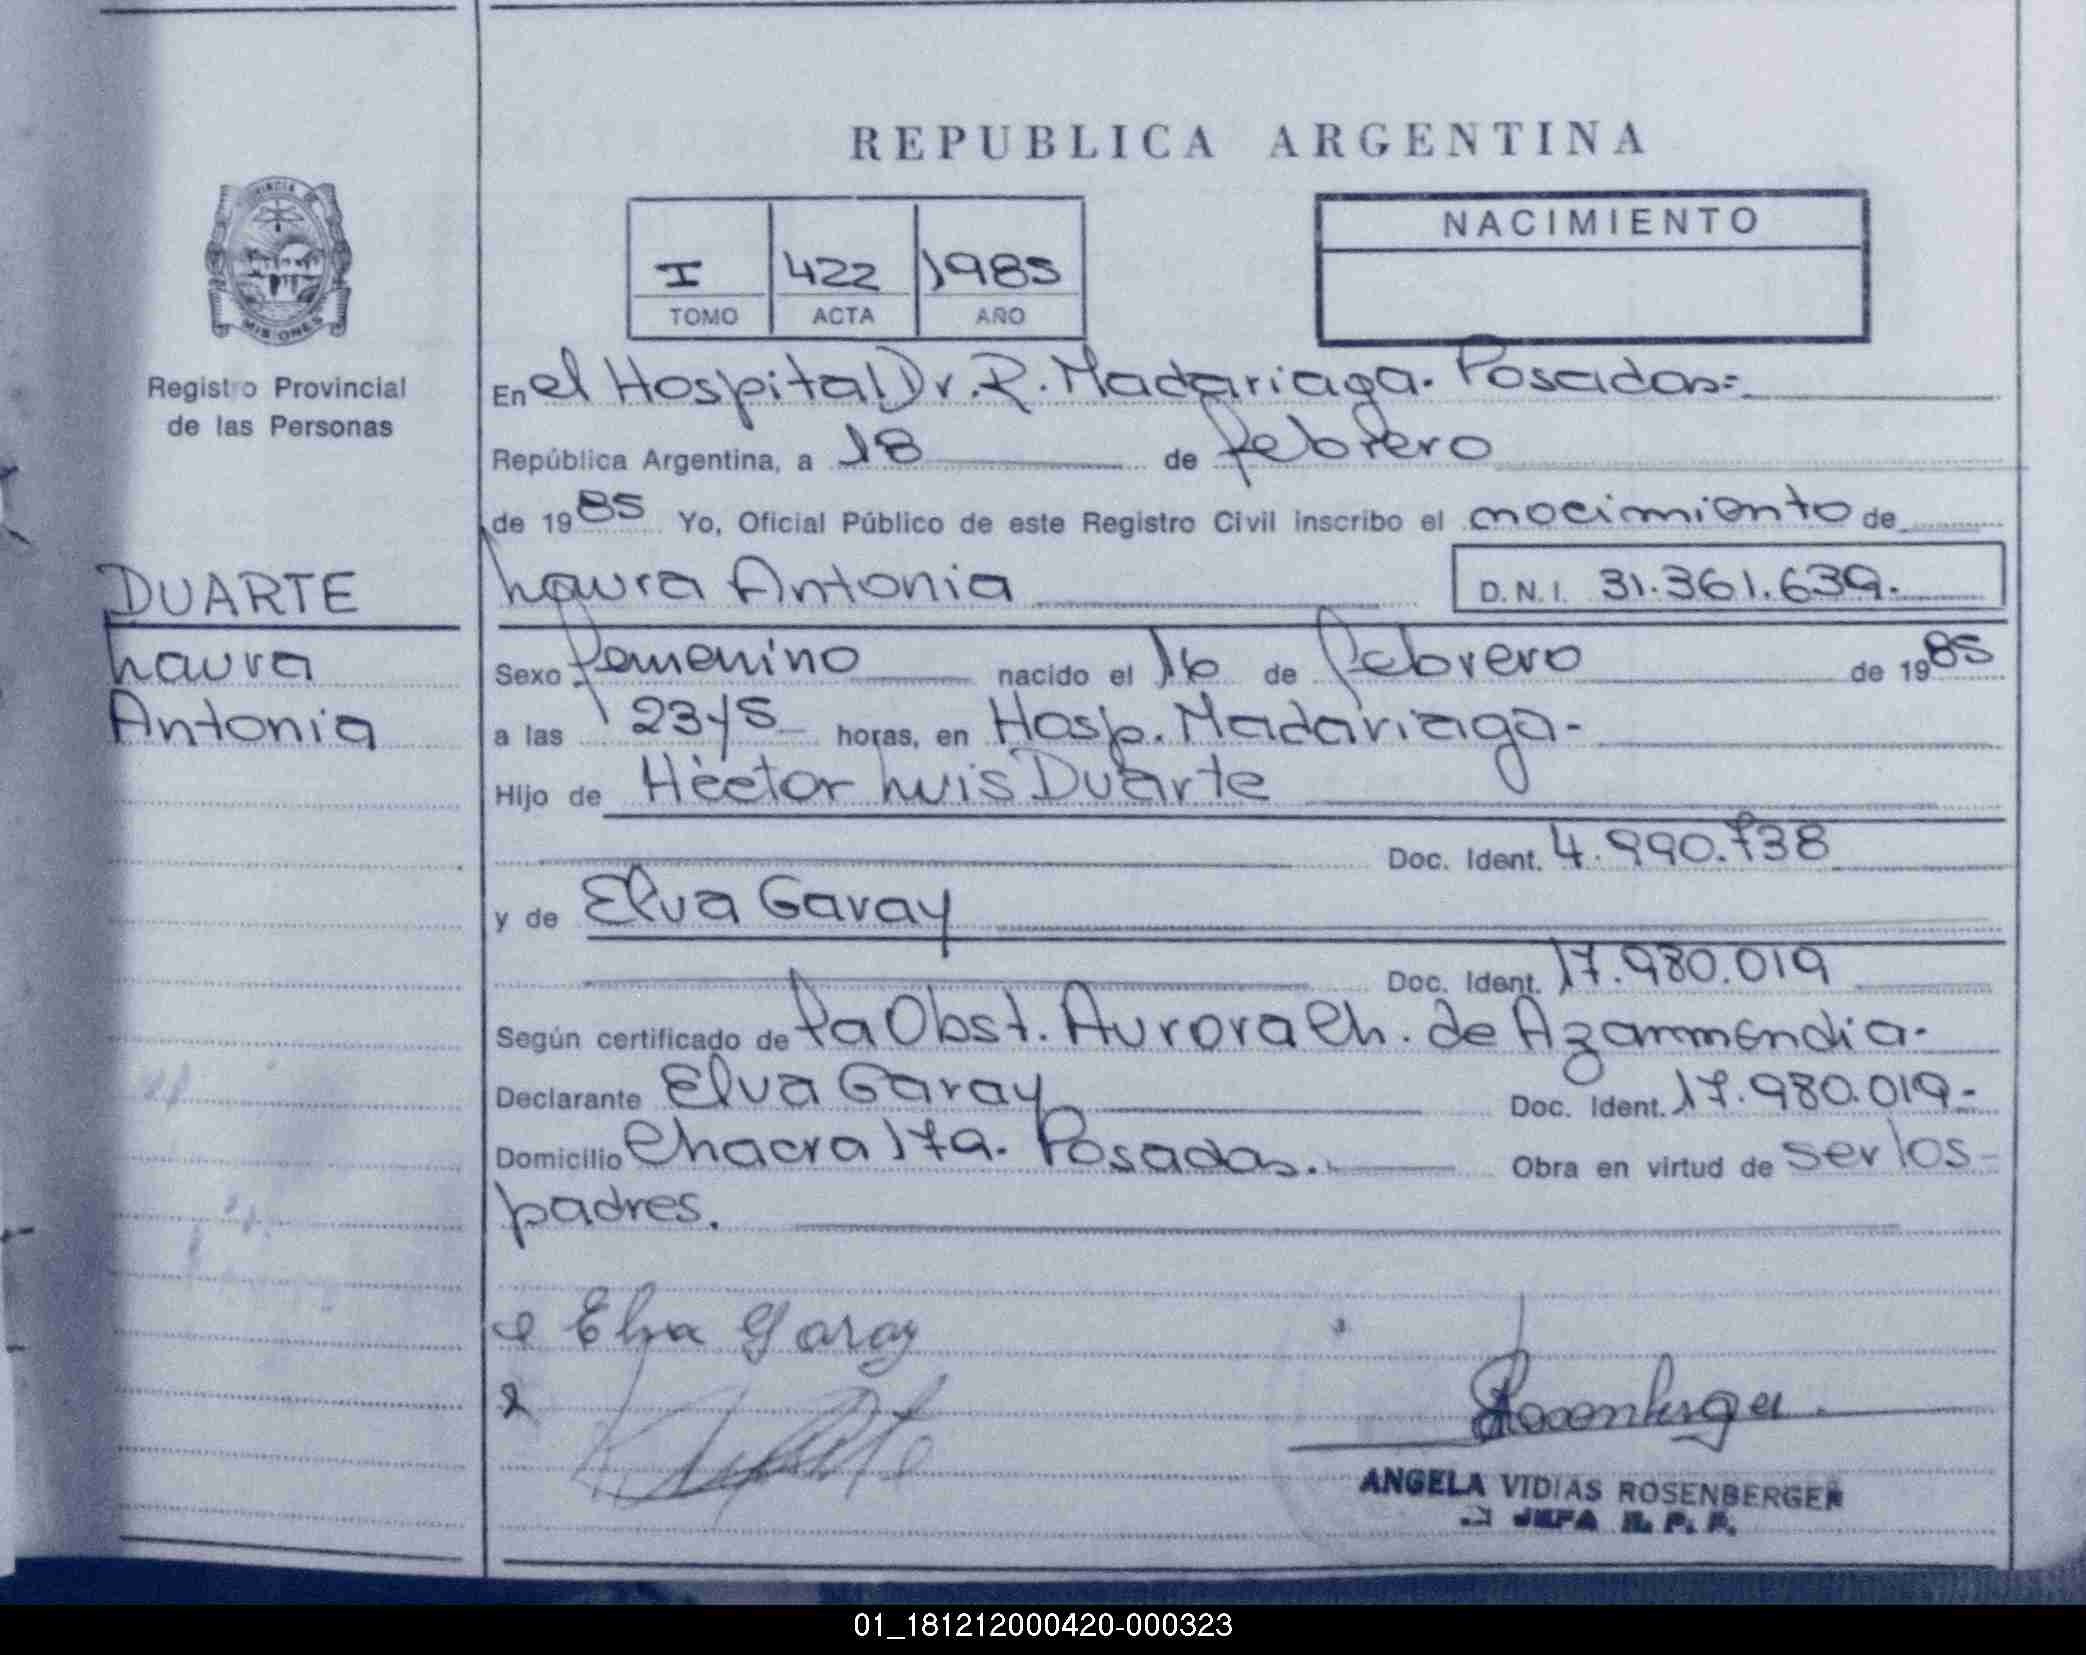 REPUBLICA ARGENTINA
PROVINCIA DE
MISIONES
Registro Provincial
de las Personas
I 422 1985
TOMO ACTA AÑO
NACIMIENTO
En el Hospital Dr. R. Madariaga. Posadas=
República Argentina, a 18 de febrero
de 1985 Yo, Oficial Público de este Registro Civil inscribo el nacimiento de
DUARTE
Laura
Antonia
Laura Antonia D.N.I. 31.361.639.
Sexo femenino nacido el 16 de febrero de 1985
a las horas, en Hosp. Madariaga-
Hijo de Héctor Luis Duarte
Doc. Ident. 4.990.738
y de Elva Garay
Doc. Ident. 17.980.019
Según certificado de la Obst. Aurora Ch. de
Declarante Elva Garay Doc. Ident. 17.980.019-
Domicilio Chacra Posadas. Obra en virtud de ser los
padres.
Elva Garay
Rosenberger
ANGELA VIDIAS ROSENBERGER
JEFA R. P. P.
01_181212000420-000323